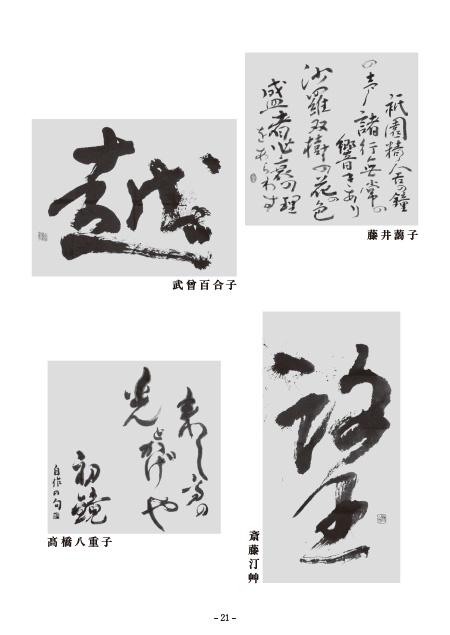 祇園精舎の鐘
の声 諸行無常の
響きあり
沙羅双樹の花の色
盛者必衰の理
をあらわす
藤井藹子
越
武曾百合子
望
斎藤汀艸
来し方の
光とかげや
初鏡
自作の句
髙橋八重子
– 21 –